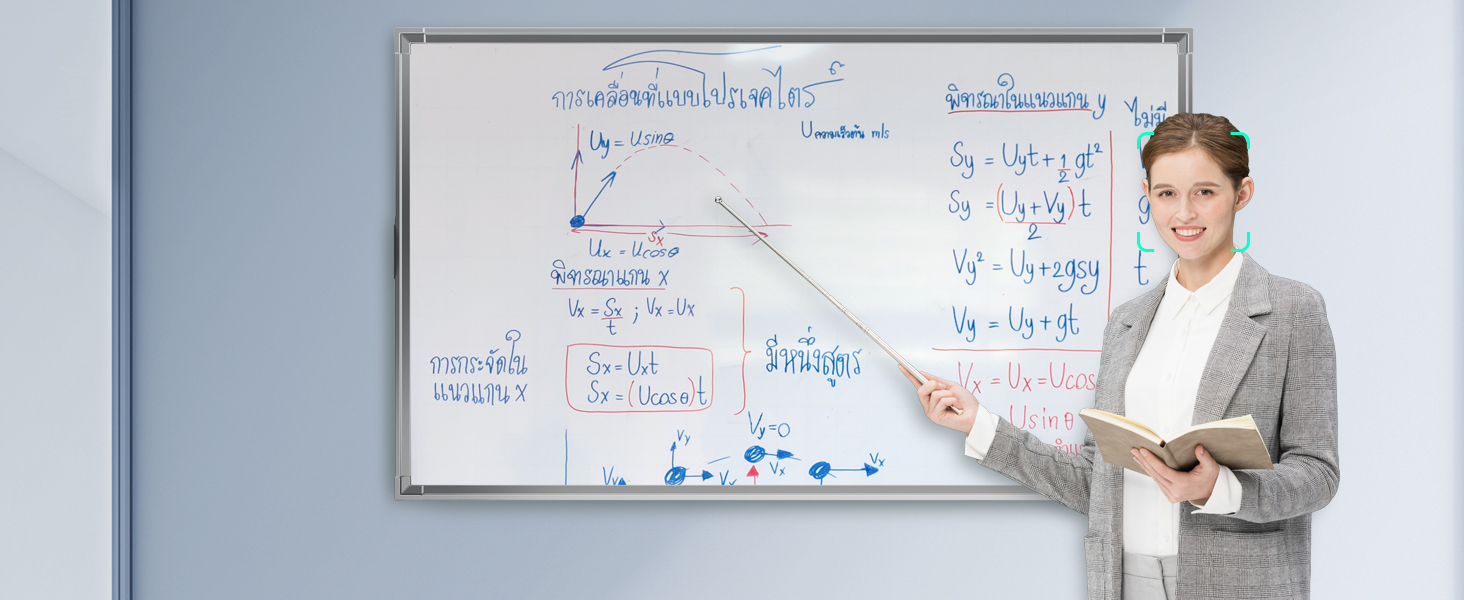 การเคลื่อนที่แบบโปรเจคไตร์
Uy = Usinθ
U ความเร็วต้น m/s
Sx
Ux = Ucosθ
พิจารณาแกน x
Vx = Sx/t ; Vx = Ux
การกระจัดใน
แนวแกน x
Sx = Uxt
Sx = (Ucosθ)t
มีหนึ่งสูตร
Vy
Vy = 0
Vx
Vx
พิจารณาในแนวแกน y
ไม่มี
Sy = Uyt + 1/2 gt²
Sy = (Uy + Vy)/2 t
Vy² = Uy + 2gsy
Vy = Uy + gt
g
t
Vx = Ux = Ucos
Usinθ